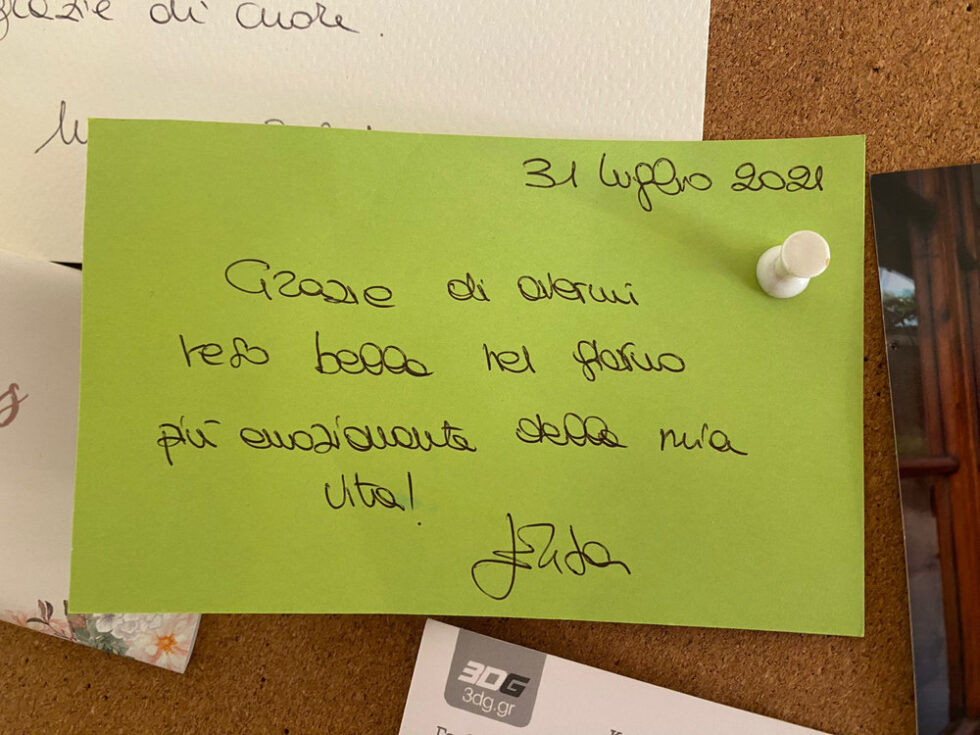 grazie di cuore.
31 luglio 2021
Grazie di avermi
reso bella nel giorno
più emozionante della mia
vita!
3DG
3dg.gr